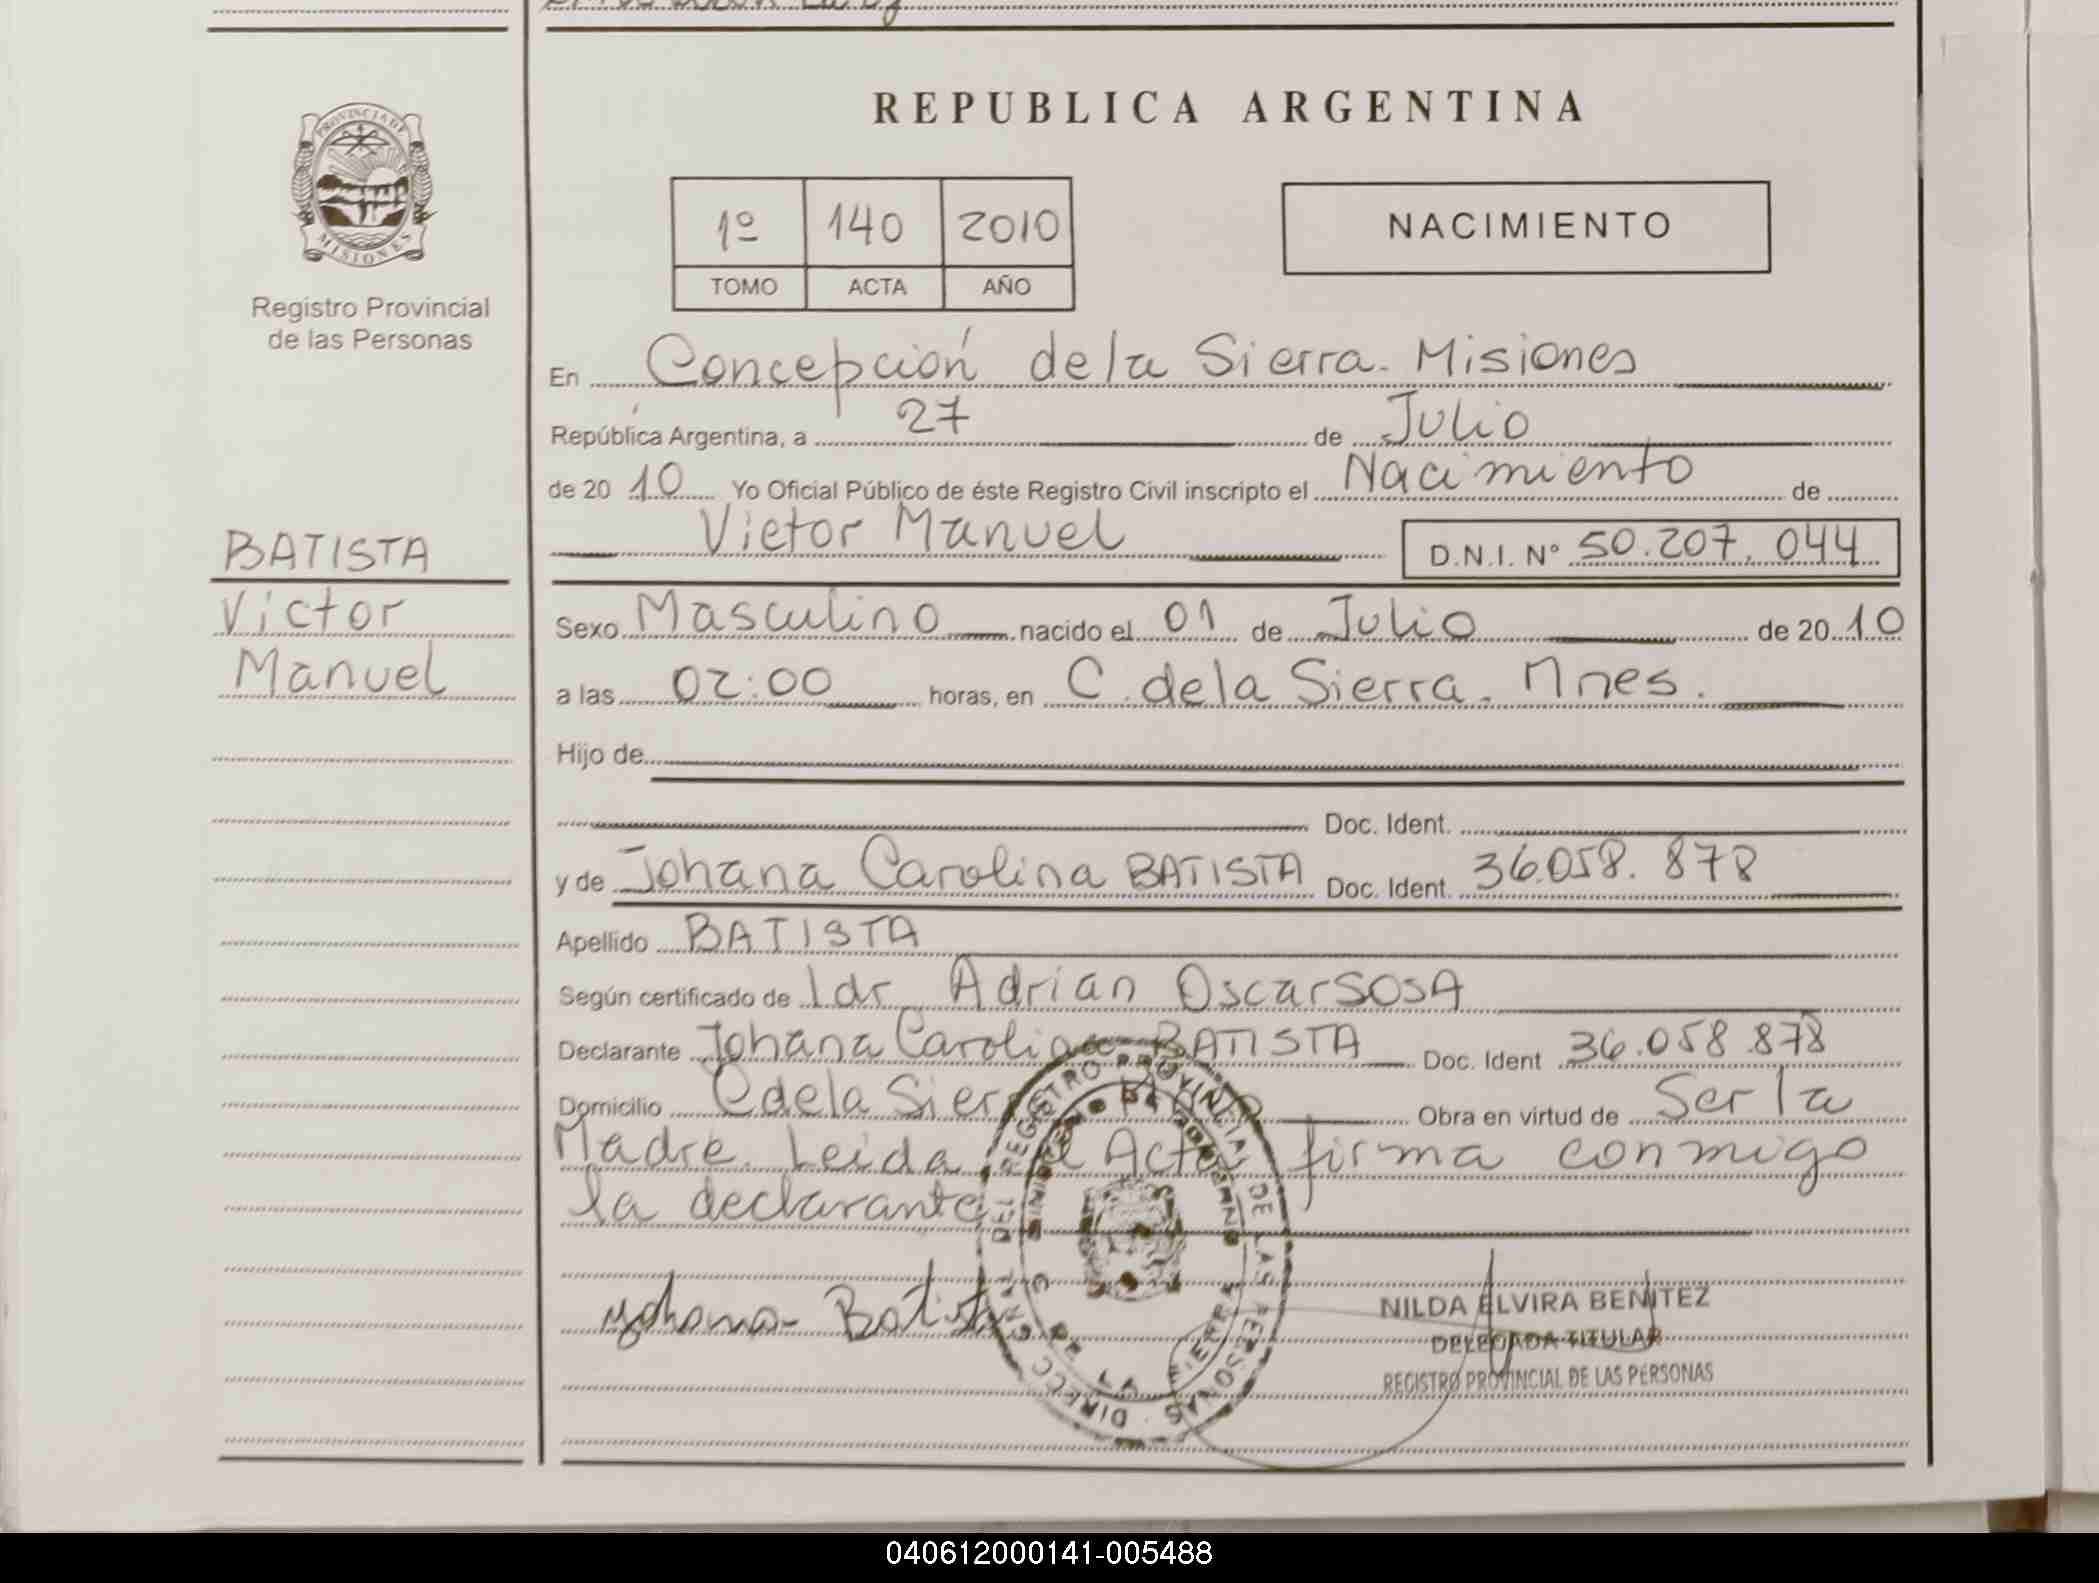 REPUBLICA ARGENTINA
PROVINCIA DE
MISIONES
Registro Provincial
de las Personas
1º 140 2010
TOMO ACTA AÑO
NACIMIENTO
En Concepción de la Sierra. Misiones
República Argentina, a 27 de Julio
de 2010 Yo Oficial Público de éste Registro Civil inscripto el Nacimiento de
Victor Manuel D.N.I. Nº 50.207.044
BATISTA
Victor
Manuel
Sexo Masculino nacido el 01 de Julio de 2010
a las 02:00 horas, en C. de la Sierra. Mnes.
Hijo de
Doc. Ident.
y de Johana Carolina BATISTA Doc. Ident. 36.058.878
Apellido BATISTA
Según certificado de Idr Adrian Oscar SOSA
Declarante Johana Carolina BATISTA Doc. Ident 36.058.878
Domicilio C de la Sierra Obra en virtud de Ser la
Madre. Leida el Acta firma conmigo
la declarante
DIRECC. GRAL. DEL REGISTRO PROVINCIAL DE LAS PERSONAS
MINISTERIO DE GOBIERNO
C. DE LA SIERRA
Yohana Batista
NILDA ELVIRA BENITEZ
DELEGADA TITULAR
REGISTRO PROVINCIAL DE LAS PERSONAS
040612000141-005488